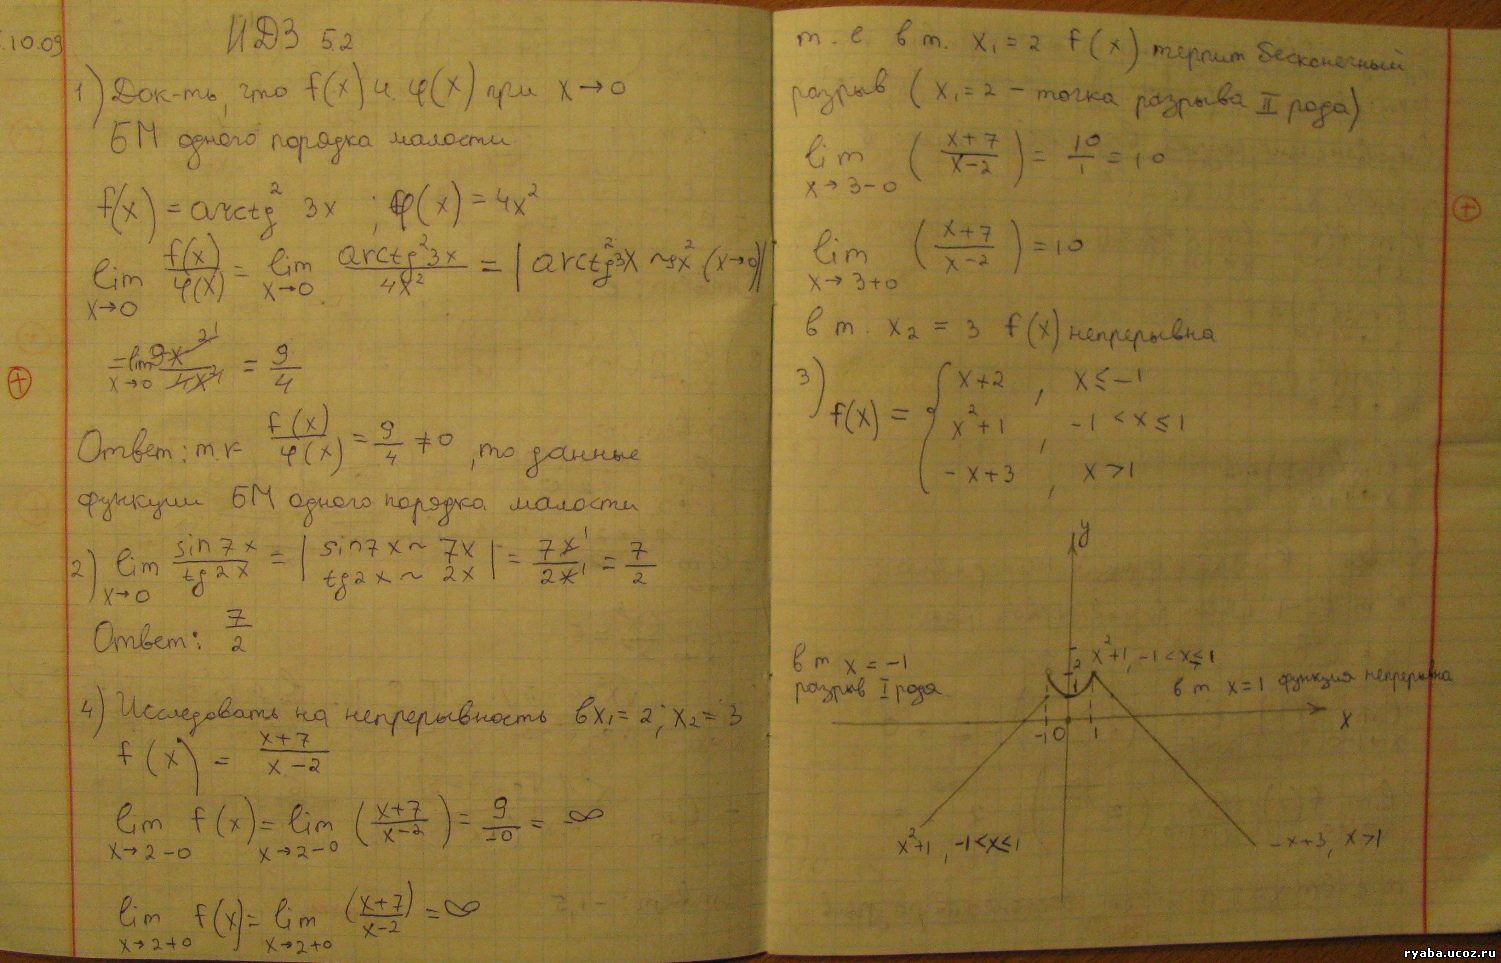 .10.09
ИДЗ 5.2
1) Док-ть, что f(x) и φ(x) при x→0
БМ одного порядка малости
f(x) = arctg² 3x ; φ(x) = 4x²
lim x→0 f(x)/φ(x) = lim x→0 arctg²3x/4x² = | arctg²3x ~ 9x² (x→0) |
= lim x→0 9x²/4x² = 9/4
Ответ: т.к f(x)/φ(x) = 9/4 ≠ 0, то данные
функции БМ одного порядка малости
2) lim x→0 sin7x/tg2x = | sin7x ~ 7x tg2x ~ 2x | = 7x/2x = 7/2
Ответ: 7/2
4) Исследовать на непрерывность в x₁ = 2; x₂ = 3
f(x) = x+7/x-2
lim x→2-0 f(x) = lim x→2-0 (x+7/x-2) = 9/-0 = -∞
lim x→2+0 f(x) = lim x→2+0 (x+7/x-2) = ∞
т. е. в т. x₁ = 2 f(x) терпит бесконечный
разрыв (x₁ = 2 - точка разрыва II рода)
lim x→3-0 (x+7/x-2) = 10/1 = 10
lim x→3+0 (x+7/x-2) = 10
в т. x₂ = 3 f(x) непрерывна
3) f(x) = { x+2, x ≤ -1
x²+1, -1 < x ≤ 1
-x+3, x > 1
y
в т x = -1
разрыв I рода
2
1
x²+1, -1<x≤1
в т x=1 функция непрерывна
-1 0 1 x
x²+1, -1<x≤1
-x+3, x>1
ryaba.ucoz.ru